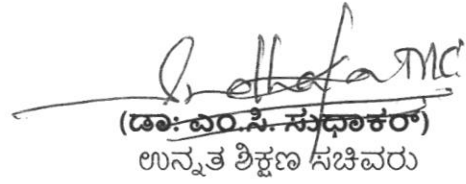 Sudhakar MC
(ಡಾ: ಎಂ.ಸಿ. ಸುಧಾಕರ್)
ಉನ್ನತ ಶಿಕ್ಷಣ ಸಚಿವರು